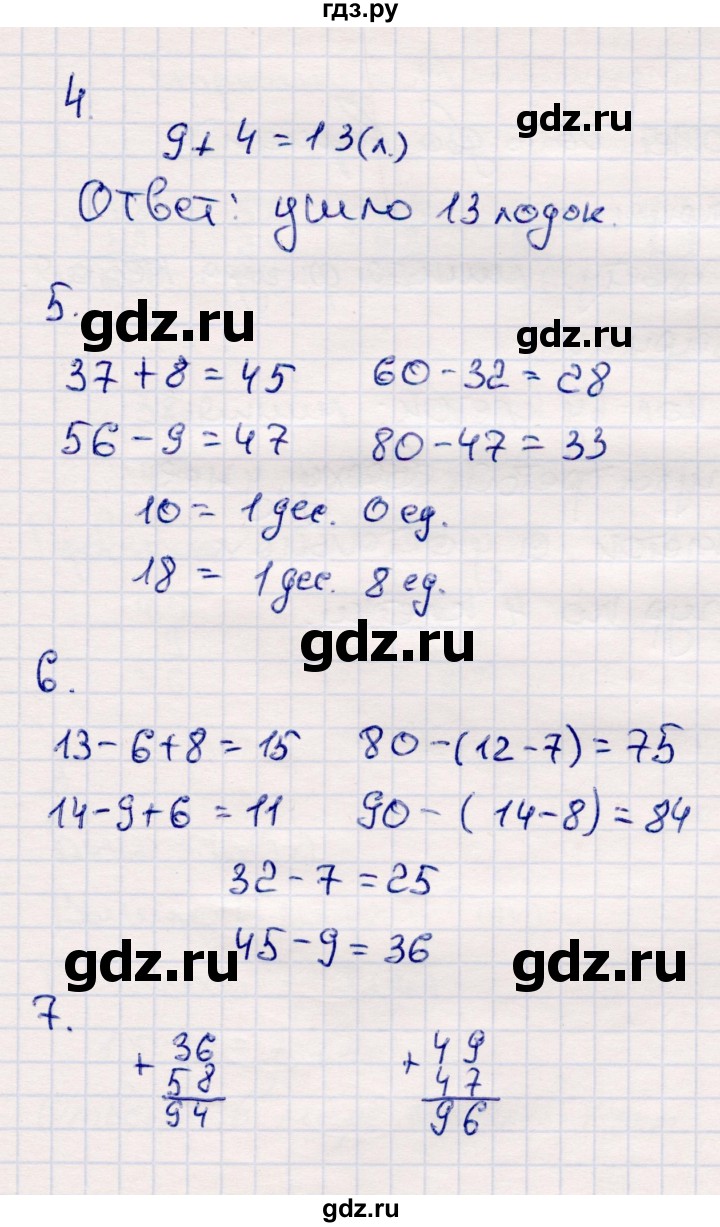 гдз.ру
4.
gdz.ru
9 + 4 = 13 (л.)
Ответ: ушло 13 лодок.
5.
gdz.ru
gdz.ru
37 + 8 = 45 60 - 32 = 28
56 - 9 = 47 80 - 47 = 33
10 = 1 дес. 0 ед.
18 = 1 дес. 8 ед.
gdz.ru
6.
13 - 6 + 8 = 15 80 - (12 - 7) = 75
14 - 9 + 6 = 11 90 - (14 - 8) = 84
32 - 7 = 25
45 - 9 = 36
gdz.ru gdz.ru
7.
+ 36 + 49
58 47
94 96
gdz.ru